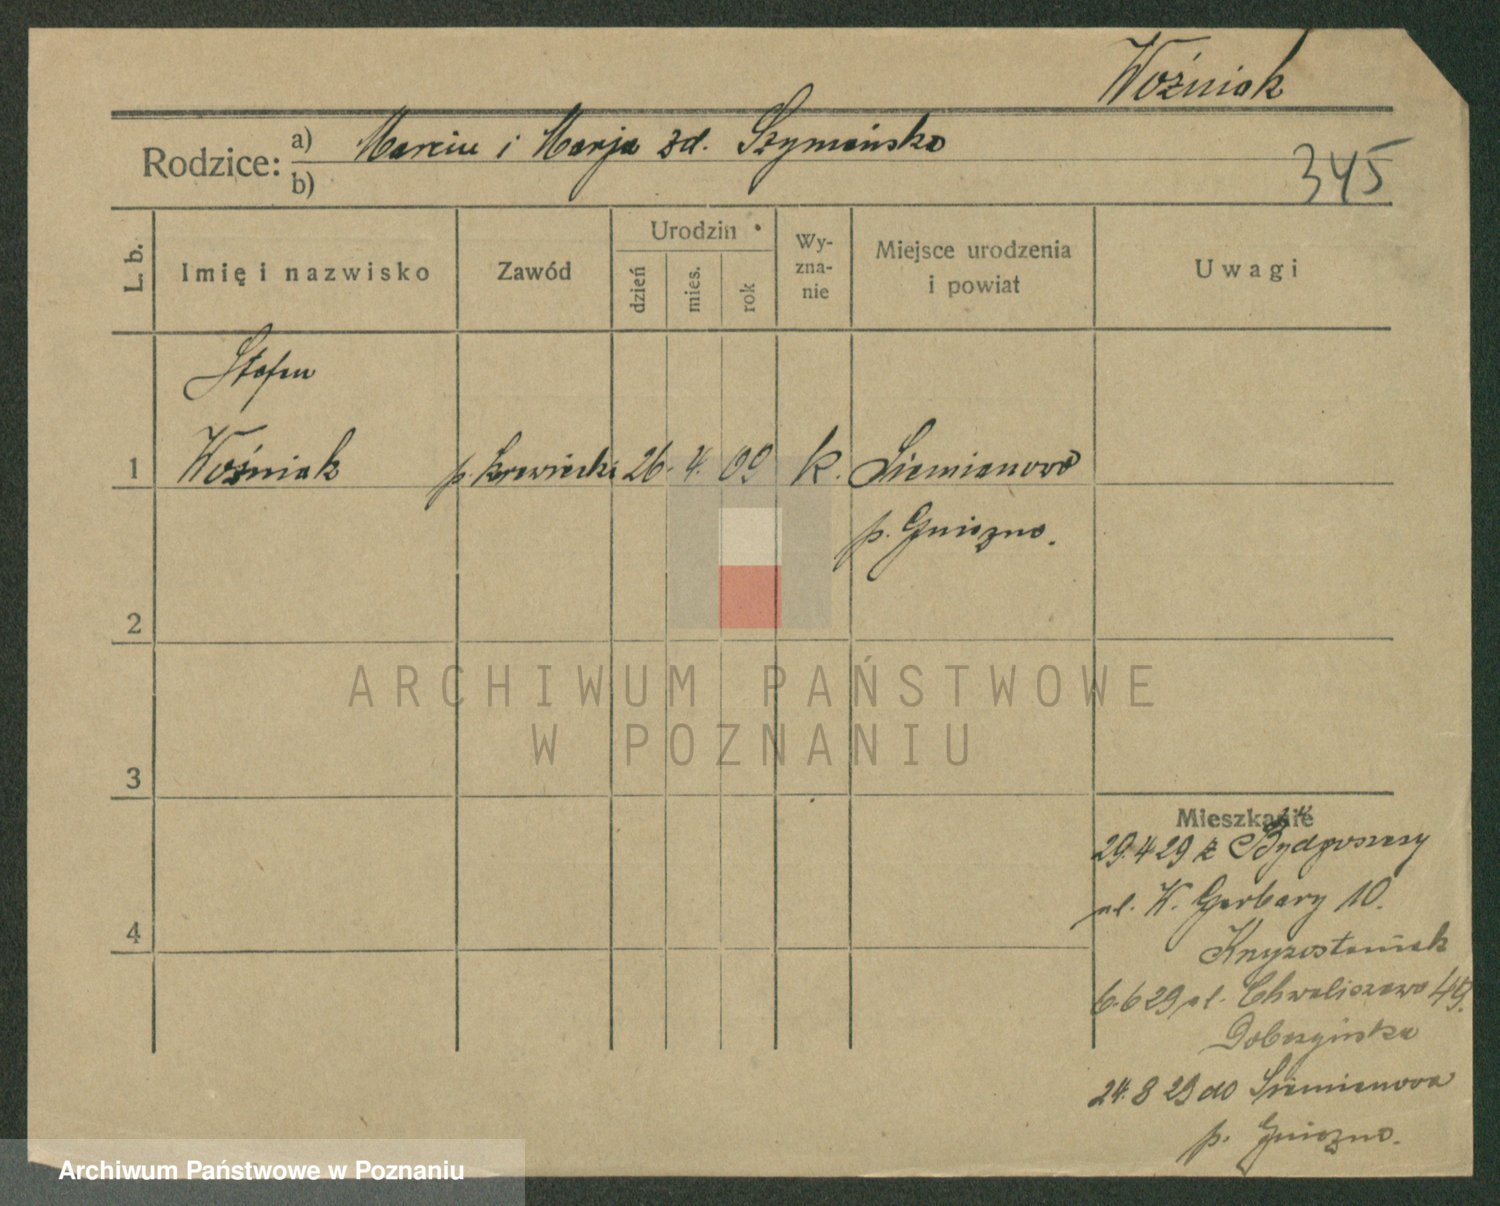 Woźniak
Rodzice: a) Marcin i Marja zd. Szymańska
b)
345
L. b.
Imię i nazwisko
Zawód
Urodzin
dzień
mies.
rok
Wy-
zna-
nie
Miejsce urodzenia
i powiat
Uwagi
Stefan
1 Woźniak p. krawiecki 26. 4. 09 k. Siemianowo
p. Gniezno.
2
3
4
Mieszkanie
29.4 29 z Bydgoszczy
ul. W. Garbary 10.
6.6 29 ul. Chwaliszewo 49.
24.8 29 do Siemianowa
p. Gniezno.
ARCHIWUM PAŃSTWOWE
W POZNANIU
Archiwum Państwowe w Poznaniu